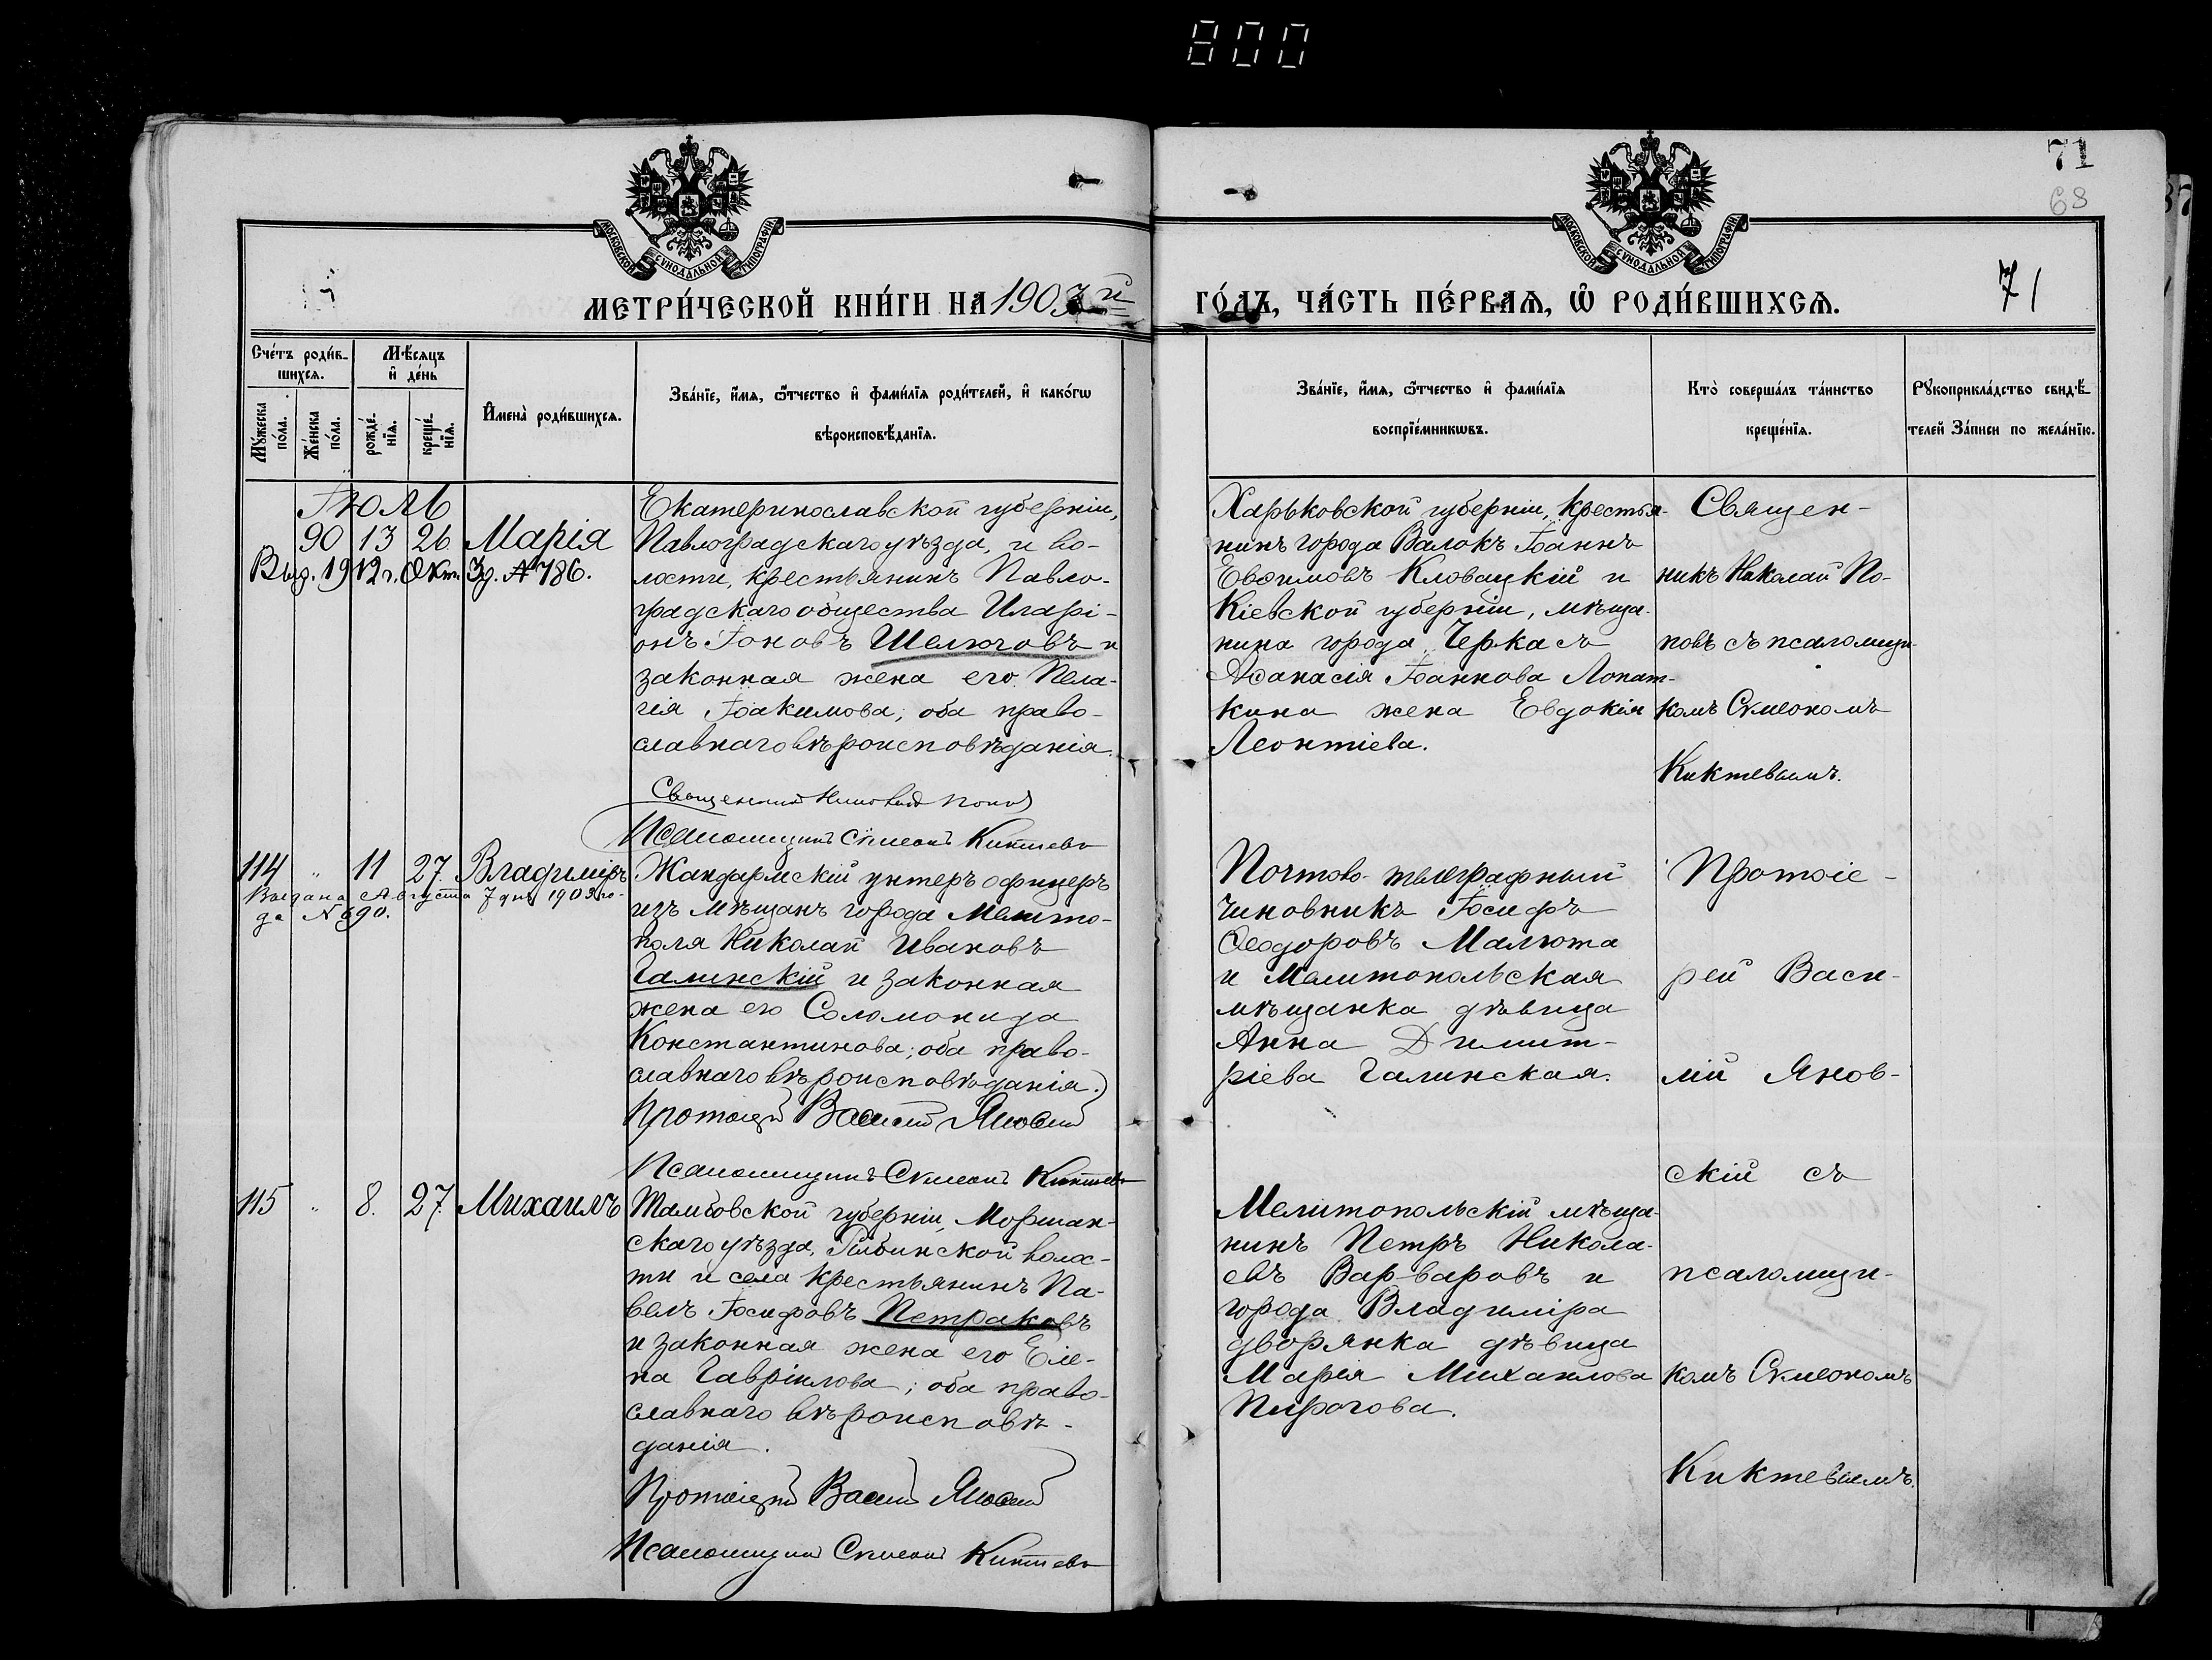 800
71
68
МОСКОВСКОЙ СѴНОДАЛЬНОЙ ТИПОГРАФІИ
МОСКОВСКОЙ СѴНОДАЛЬНОЙ ТИПОГРАФІИ
МЕТРИ́ЧЕСКОЙ КНИ́ГИ НА 1903й
ГО́ДЪ, ЧА́СТЬ ПЕ́РВАѦ, Ѡ҆ РОДИ́ВШИХСѦ.
71
Сче́тъ роди́в-
шихсѧ.
Мѣ́сѧцъ
и҆ де́нь
Мꙋ́жеска
по́ла.
Же́нска
по́ла.
рожде́-
нїѧ.
креще́-
нїѧ.
И҆мена̀ роди́вшихсѧ.
Зва́нїе, и҆́мѧ, ѻ҆́тчество и҆ фами́лїѧ роди́телей, и҆ како́гѡ
вѣроисповѣ́данїѧ.
Зва́нїе, и҆́мѧ, ѻ҆́тчество и҆ фами́лїѧ
воспрїе́мникѡвъ.
Кто̀ соверша́лъ та́инство
креще́нїѧ.
Рꙋкоприкла́дство свидѣ́-
телей За́писи по жела́нїю.
Іюль
90 13 26 Марія
Выд. 1912 г. Окт. 3 д. № 786.
Екатеринославской губерніи,
Павлоградскаго уѣзда, и во-
лости, крестьянинъ Павло-
градскаго общества Иларі-
онъ Іоновъ Шелюговъ и
законная жена его Пела-
гія Іоакимова; оба право-
славнаго вѣроисповѣданія.
Священникъ Николай Поповъ
Псаломщикъ Сѵмеонъ Киктевъ
Харьковской губерніи, крестья-
нинъ города Валокъ Іоаннъ
Евѳимовъ Кловацкій и
Кіевской губерніи, мѣща-
нина города Черкасъ
Аѳанасія Іоаннова Лопат-
кина жена Евдокія
Леонтіева.
Священ-
никъ Николай По-
повъ съ псаломщи-
комъ Сѵмеономъ
Киктевымъ.
114 " 11 27 Владиміръ
Выдана Августа 7 дня 1903 го-
да № 690.
Жандармскій унтеръ офицеръ
изъ мѣщанъ города Мелито-
поля Николай Ивановъ
Галинскій и законная
жена его Соломонида
Константинова; оба право-
славнаго вѣроисповѣданія.
Протоіерей Василій Яновскій
Псаломщикъ Сѵмеонъ Киктевъ
Почтово-телеграфный
чиновникъ Іосифъ
Ѳеодоровъ Малюта
и Мелитопольская
мѣщанка дѣвица
Анна Димит-
ріева Галинская.
Протоіе-
рей Васи-
лій Янов-
скій съ
псаломщи-
комъ Сѵмеономъ
Киктевымъ.
115 " 8. 27. Михаилъ
Тамбовской губерніи, Моршан-
скаго уѣзда, волос-
ти и села крестьянинъ Па-
велъ Іосифовъ Петраковъ
и законная жена его Еле-
на Гавріилова; оба право-
славнаго вѣроисповѣ-
данія.
Протоіерей Василій Яновскій
Псаломщикъ Сѵмеонъ Киктевъ
Мелитопольскій мѣща-
нинъ Петръ Никола-
евъ Варваровъ и
города Владиміра
дворянка дѣвица
Марія Михаилова
Пирогова.